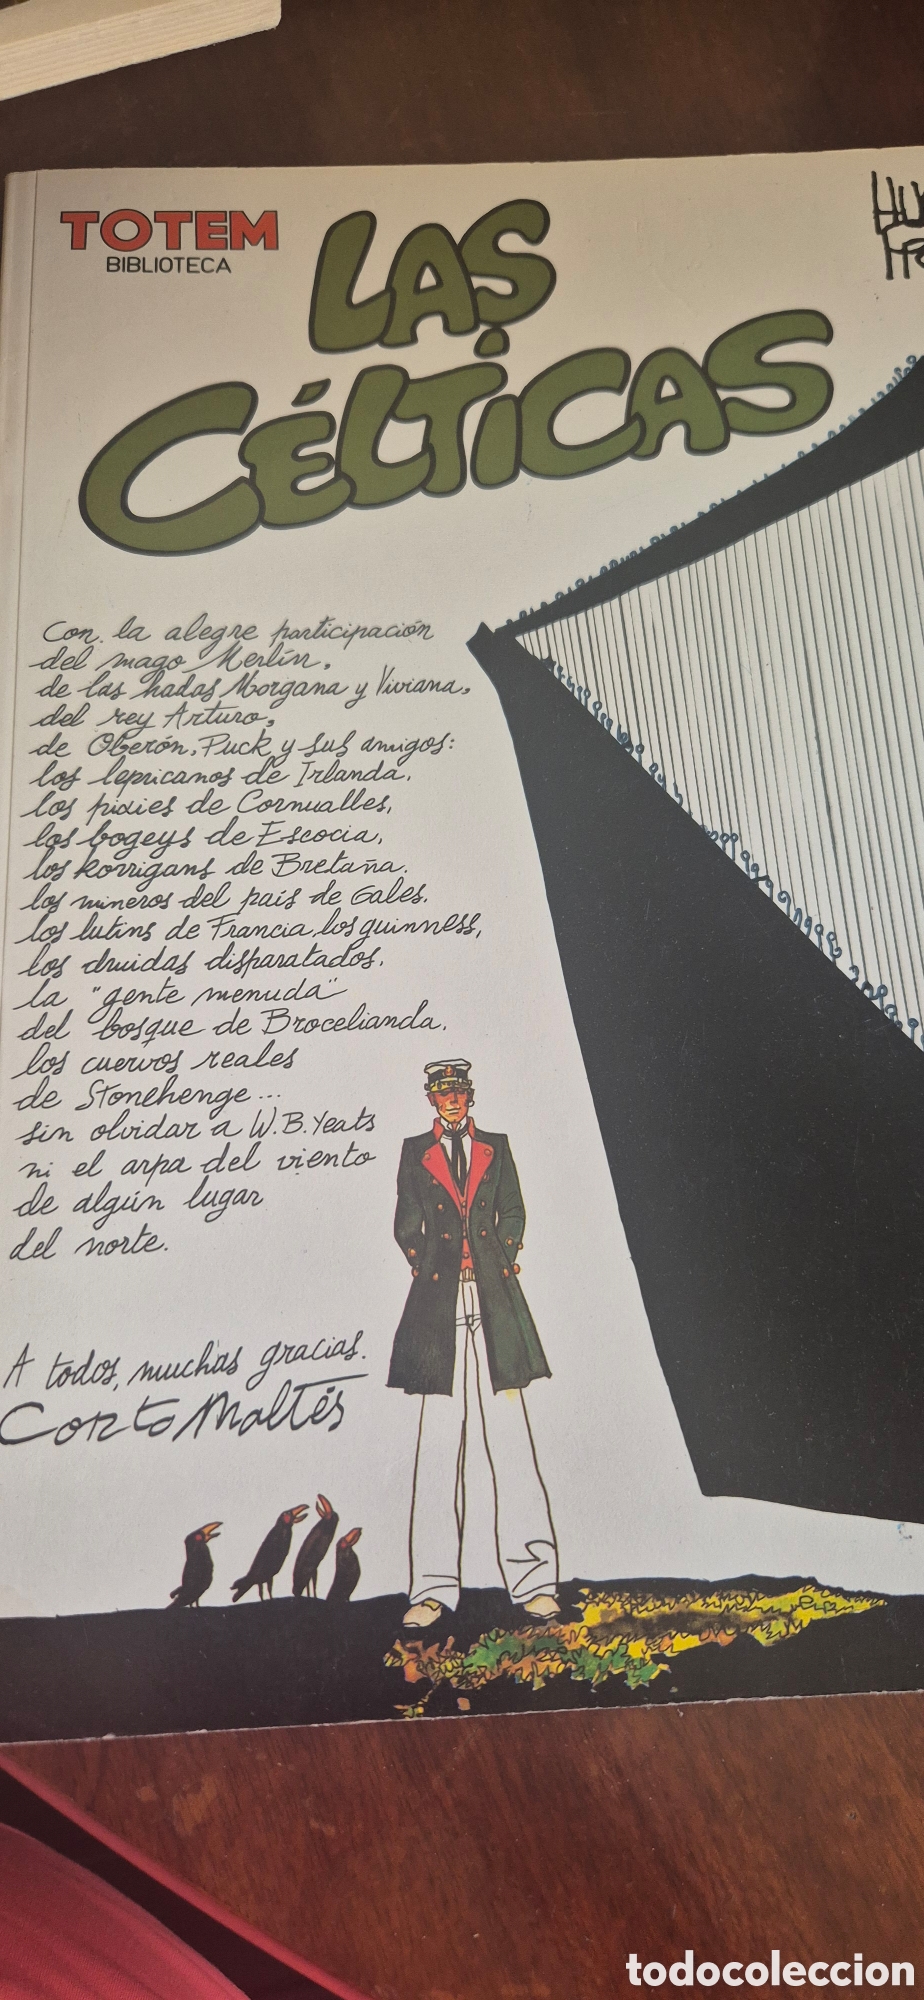 TOTEM
BIBLIOTECA
LAS
CÉLTICAS
Con la alegre participación
del mago Merlín,
de las hadas Morgana y Viviana,
del rey Arturo,
de Oberón, Puck y sus amigos:
los lepricanos de Irlanda,
los pixies de Cornualles,
los bogeys de Escocia,
los korrigans de Bretaña,
los mineros del país de Gales,
los lutins de Francia, los guinness,
los druidas disparatados,
la "gente menuda"
del bosque de Brocelianda,
los cuervos reales
de Stonehenge...
sin olvidar a W.B. Yeats
ni el arpa del viento
de algún lugar
del norte.
A todos, muchas gracias.
Corto Maltés
todocoleccion